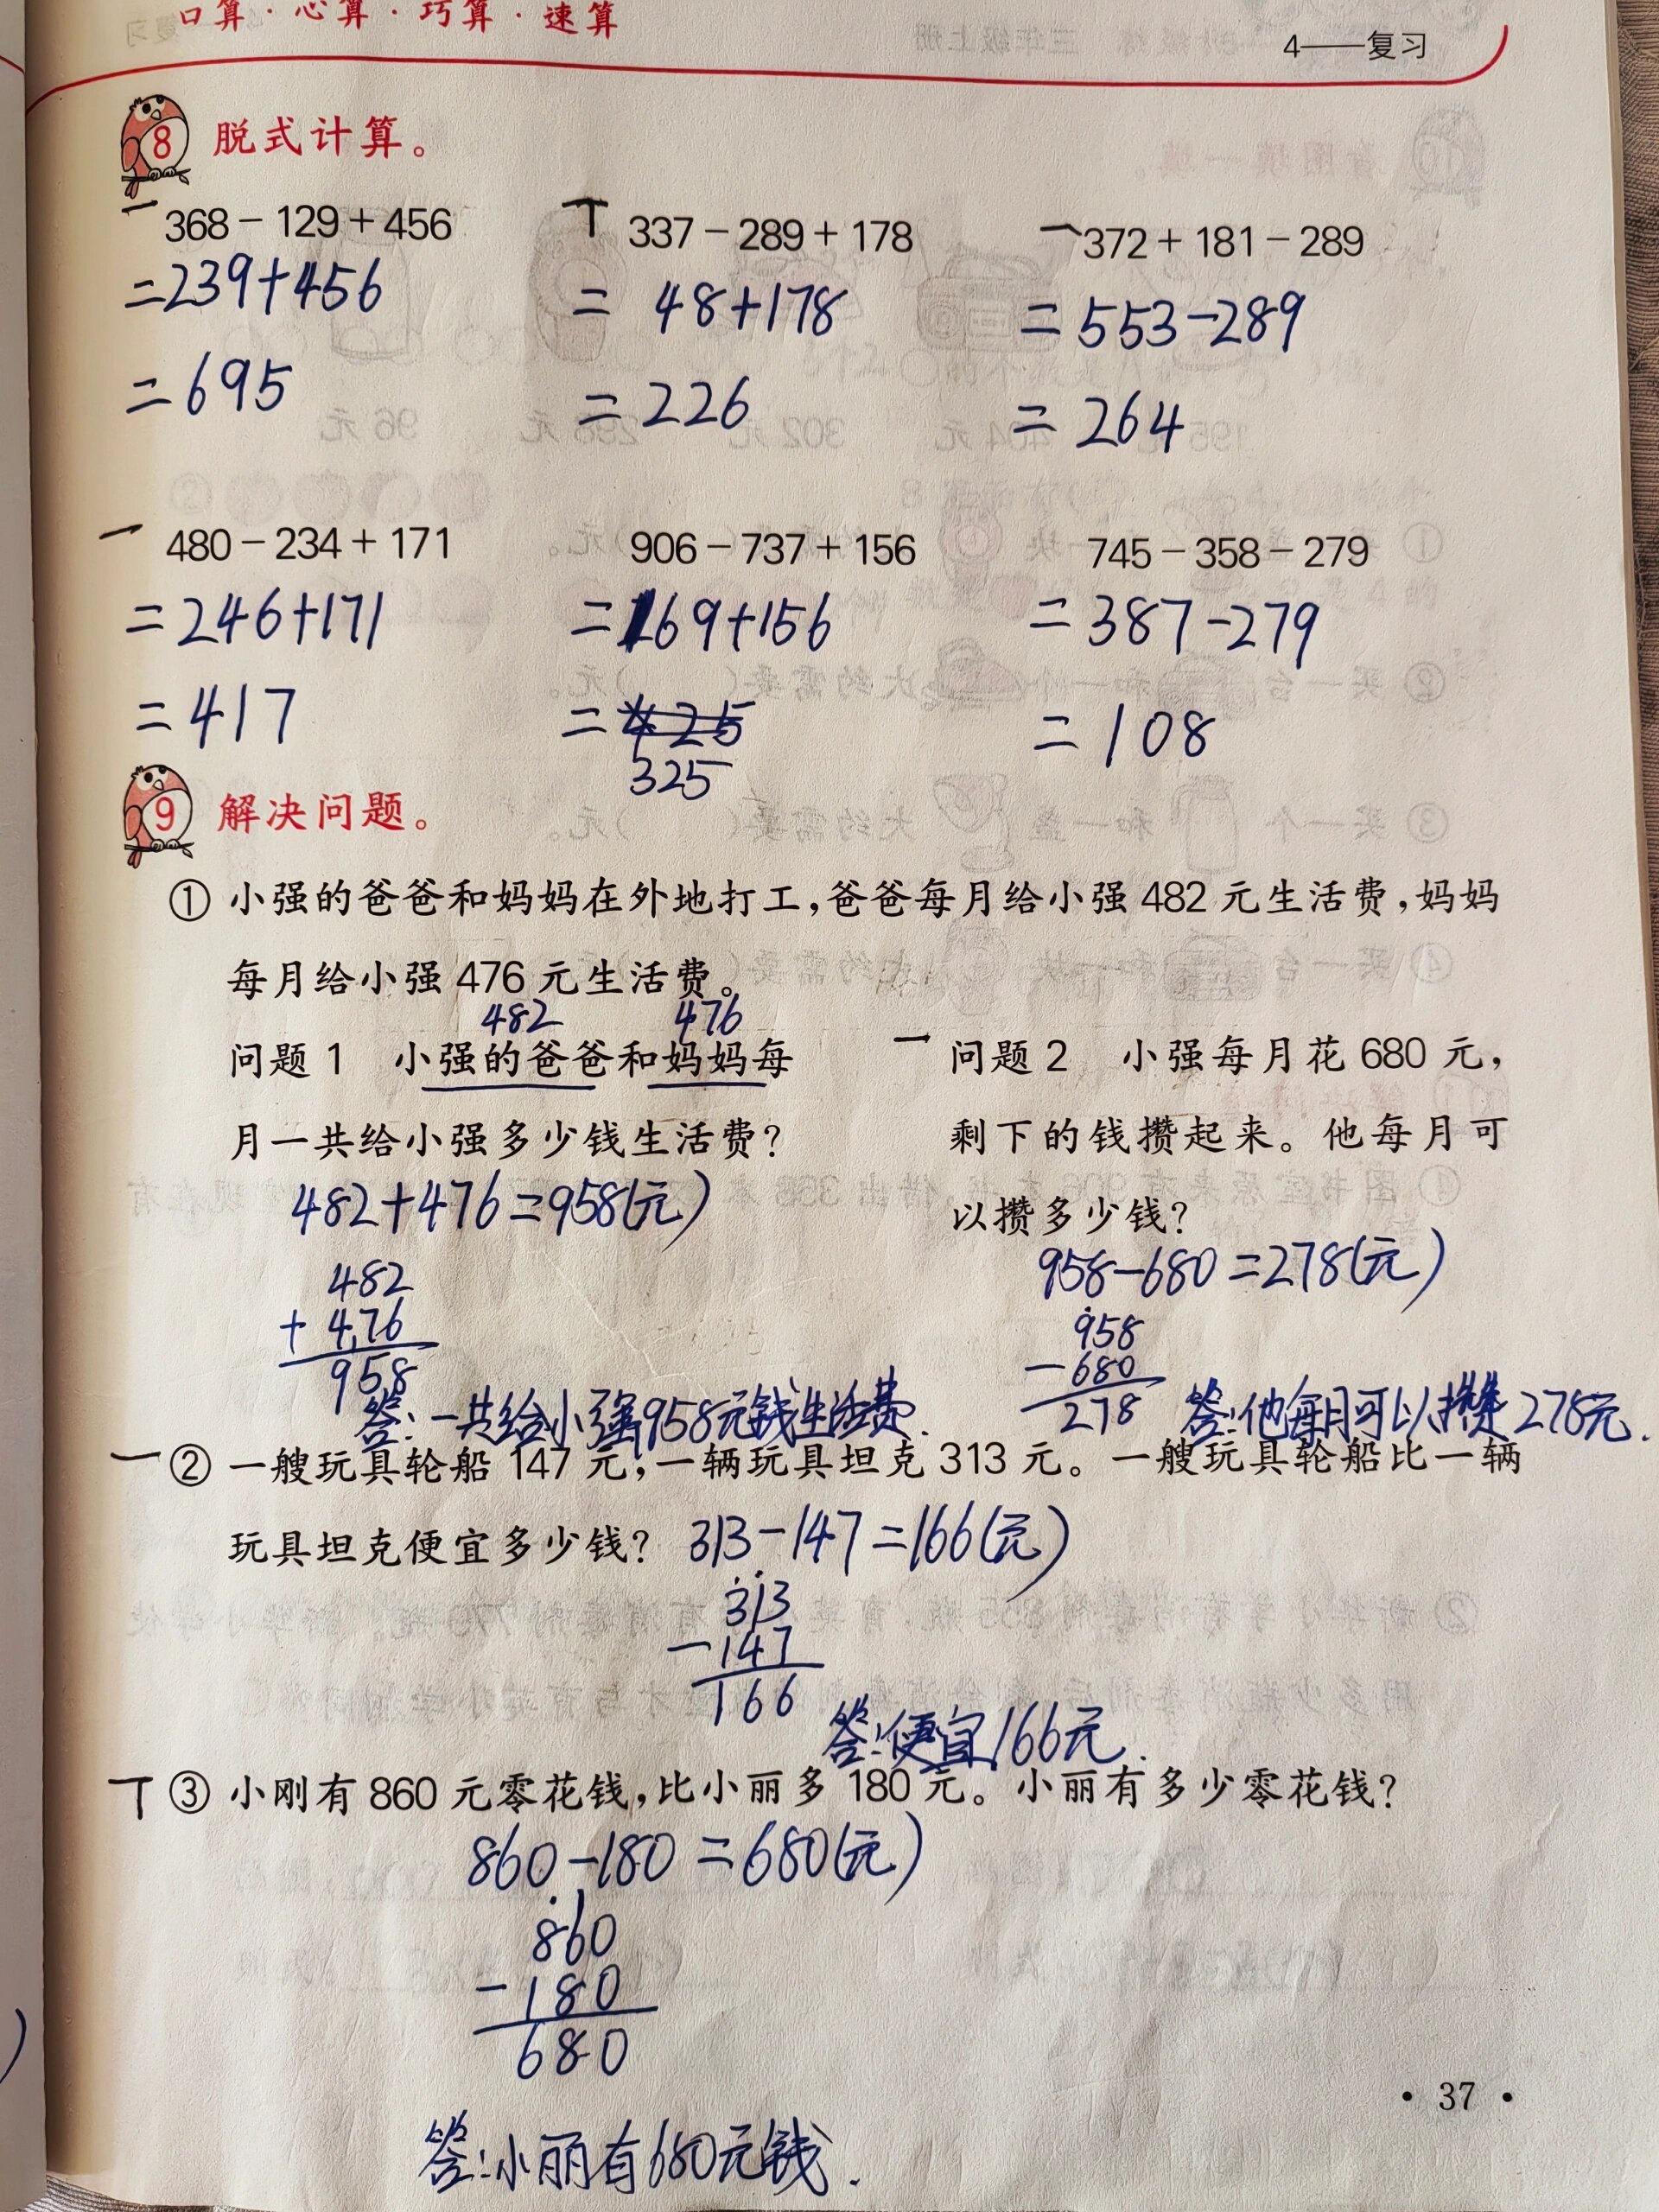 口算·心算·巧算·速算
4——复习
8 脱式计算。
368－129＋456 337－289＋178 372＋181－289
=239+456 = 48+178 =553-289
=695 =226 =264
480－234＋171 906－737＋156 745－358－279
=246+171 =169+156 =387-279
=417 =425 =108
325
9 解决问题。
① 小强的爸爸和妈妈在外地打工,爸爸每月给小强 482 元生活费,妈妈
每月给小强 476 元生活费。
482 476
问题 1 小强的爸爸和妈妈每
月一共给小强多少钱生活费?
482+476=958(元)
482
+ 476
958
答:一共给小强958元钱生活费.
问题 2 小强每月花 680 元,
剩下的钱攒起来。他每月可
以攒多少钱?
958-680=278(元)
958
-680
278
答:他每月可以攒278元.
② 一艘玩具轮船 147 元,一辆玩具坦克 313 元。一艘玩具轮船比一辆
玩具坦克便宜多少钱? 313-147=166(元)
313
-147
166
答:便宜166元.
③ 小刚有 860 元零花钱,比小丽多 180 元。小丽有多少零花钱?
860-180=680(元)
860
-180
680
答:小丽有680元钱.
·37·